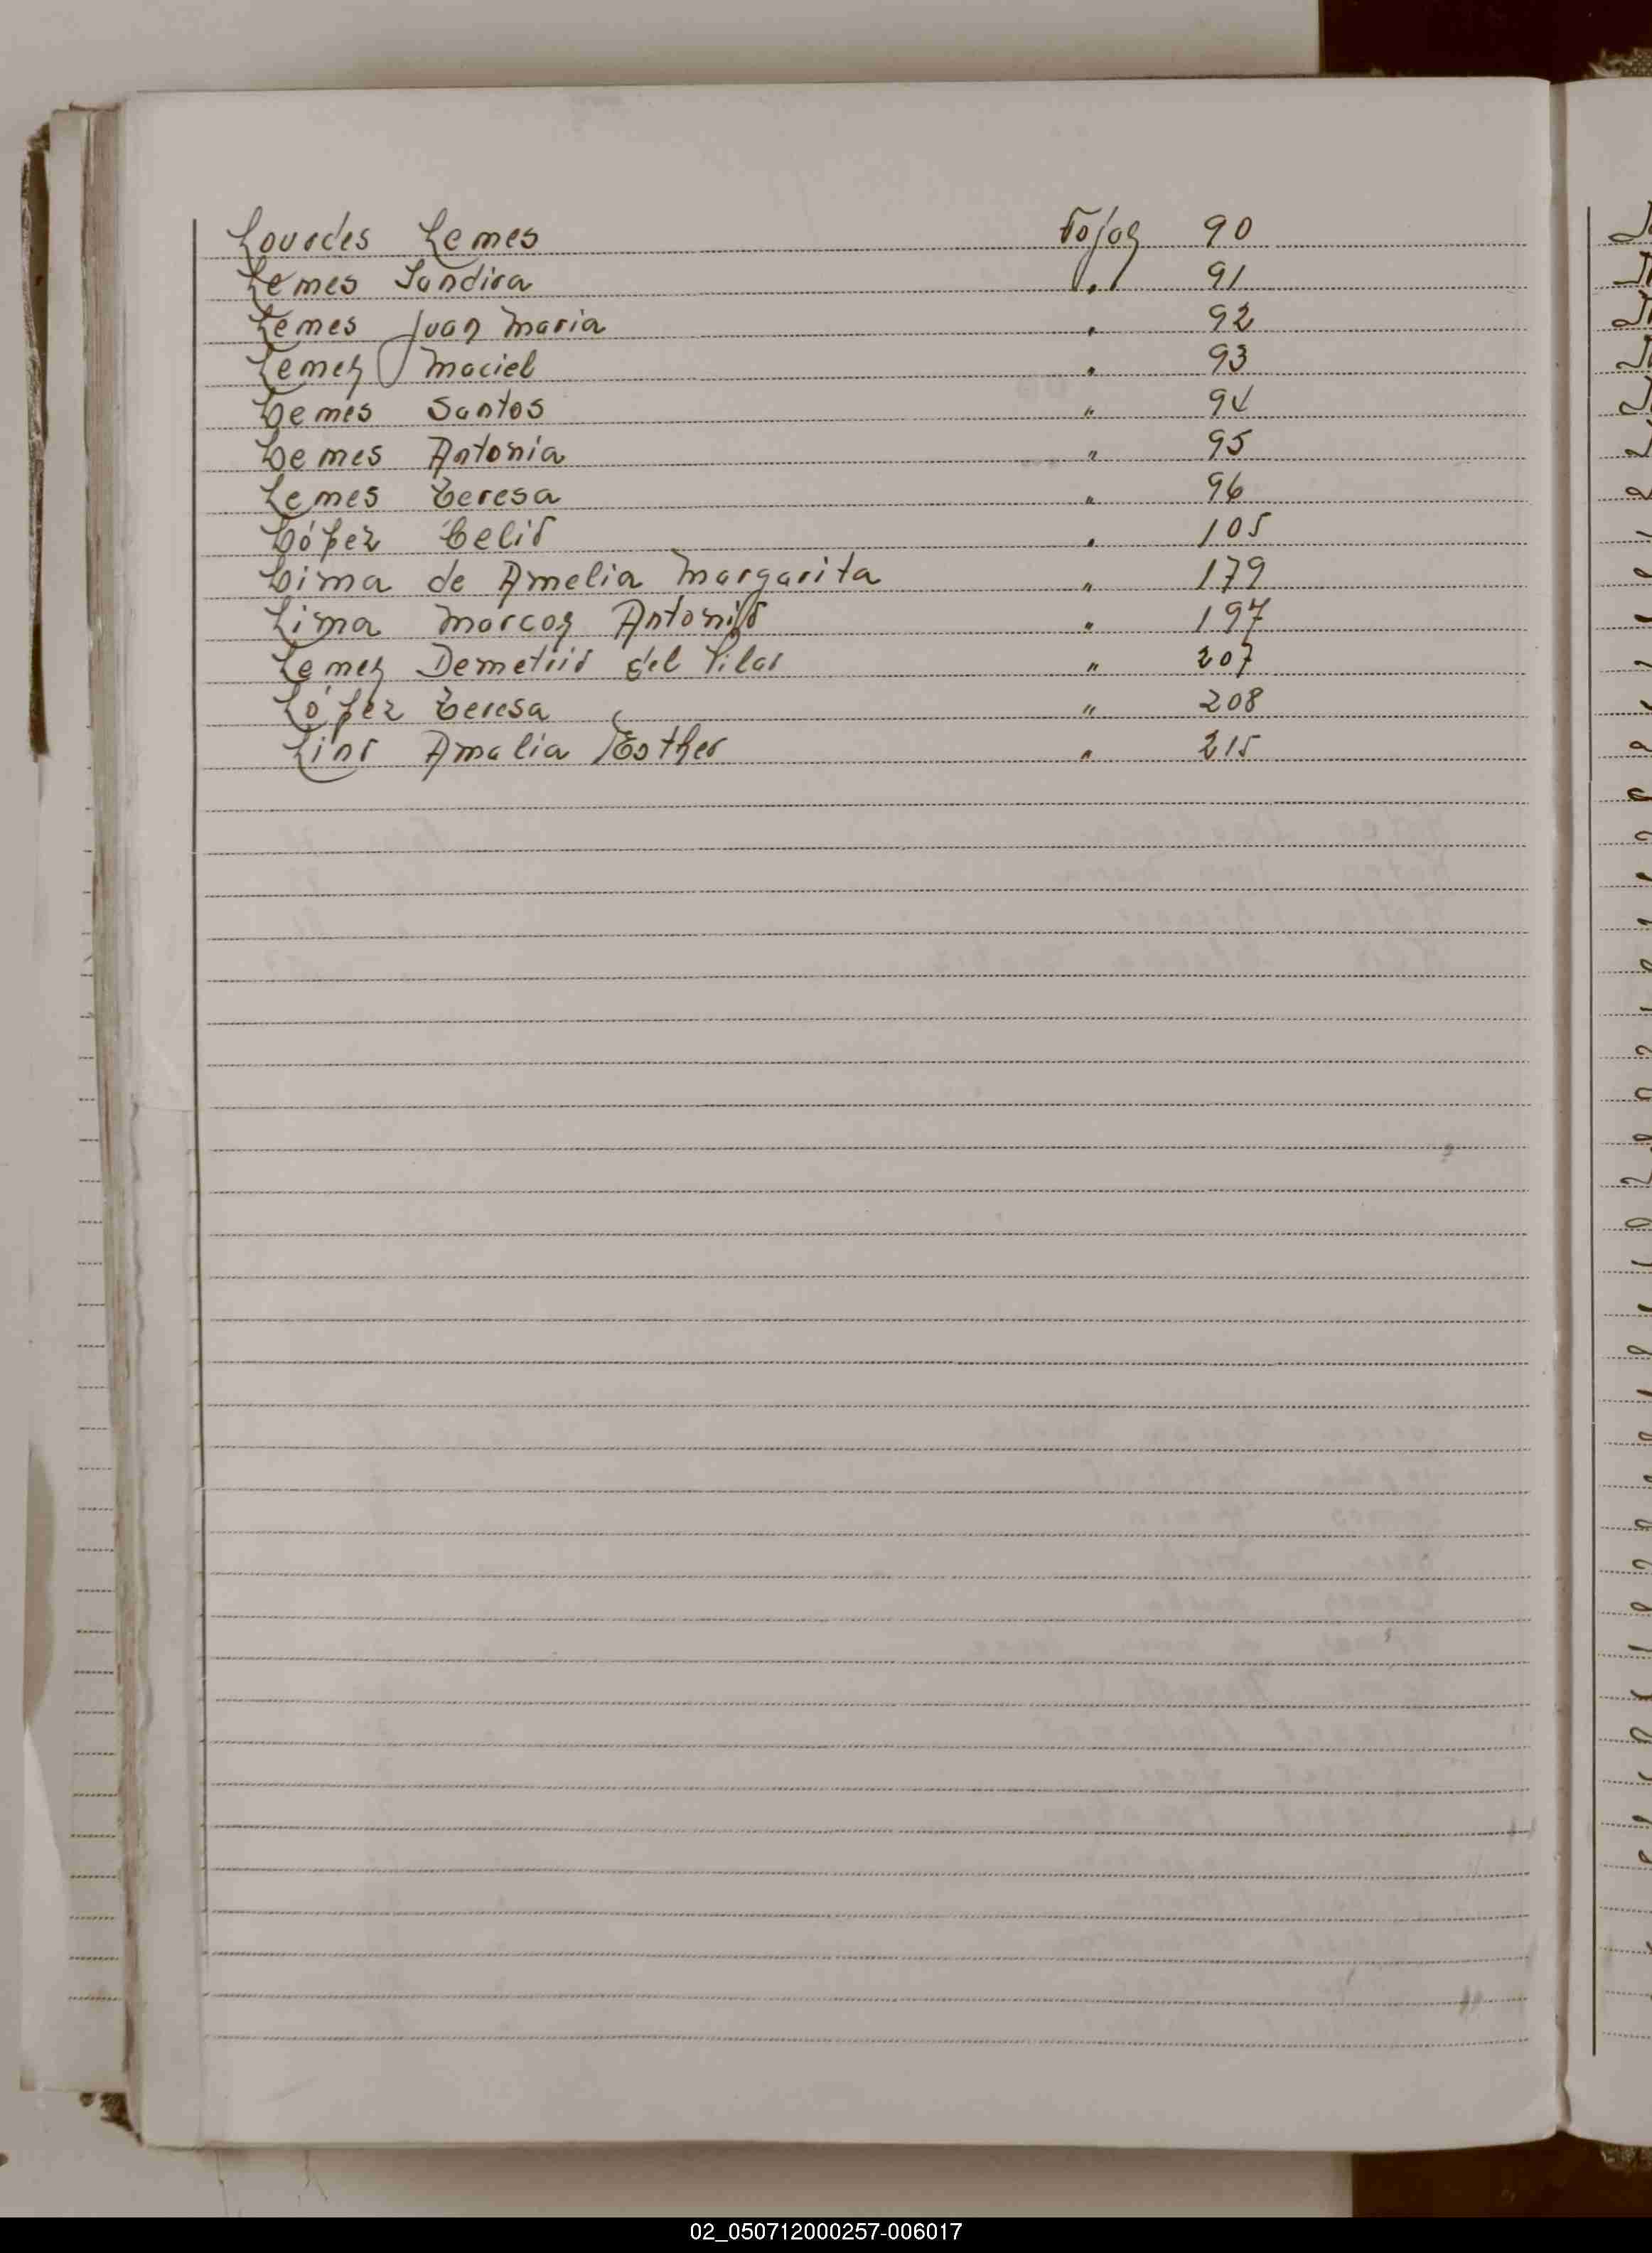 Lourdes Lemes Fojas 90
Lemes Jandira " 91
Lemes Juan Maria " 92
Lemes Maciel " 93
Lemes Santos " 94
Lemes Antonia " 95
Lemes Teresa " 96
López Celio " 105
Lima de Amelia Margarita " 179
Lima Marcos Antonio " 197
Lemes Demetrio del Pilar " 207
López Teresa " 208
Lino Amalia Esther " 215
02_050712000257-006017